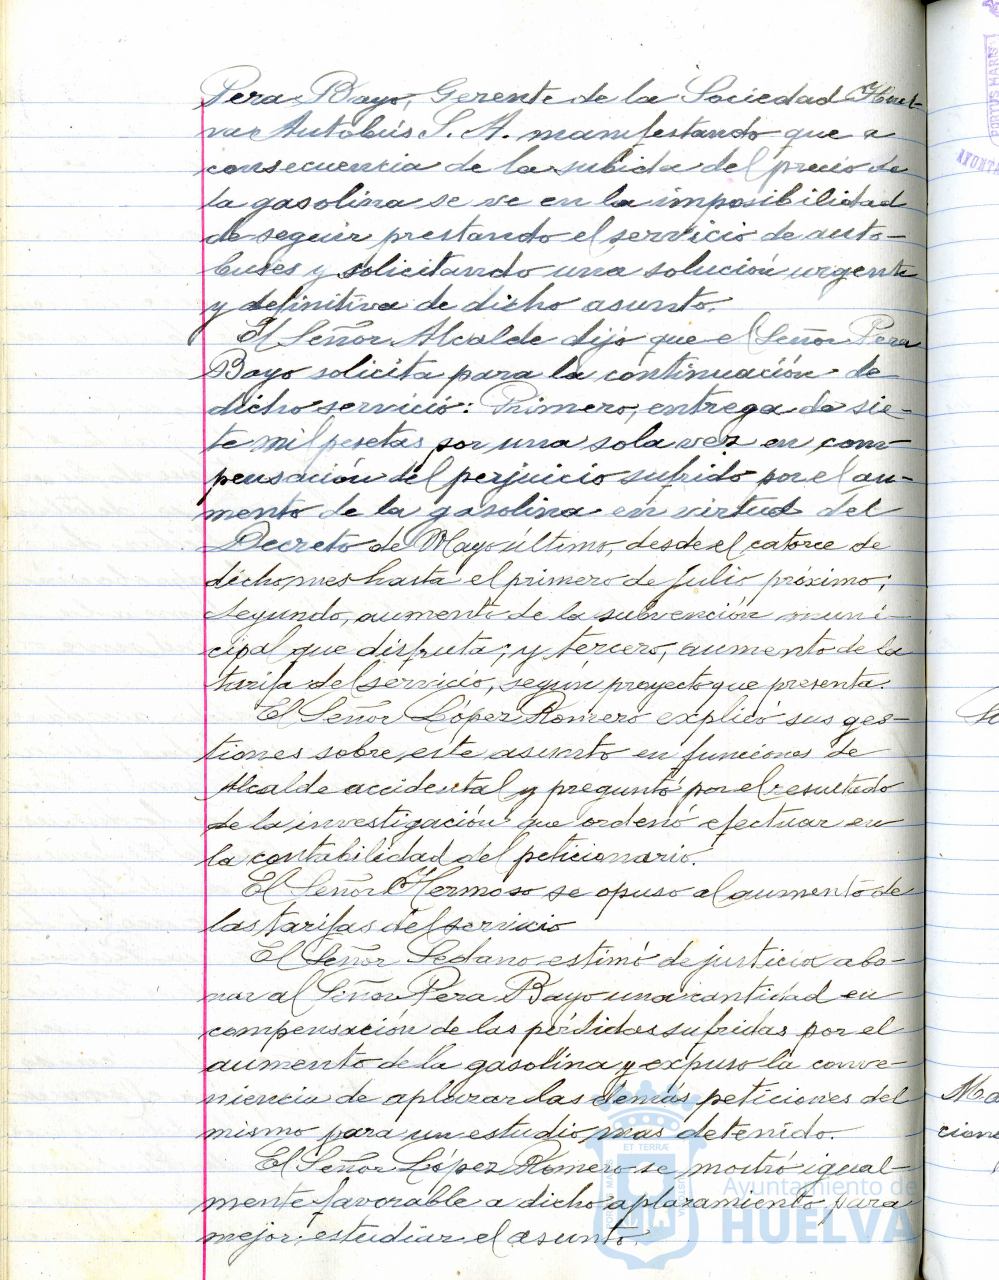 Pera Bayo, Gerente de la Sociedad Huel-
var Autobús S. A. manifestando que a
consecuencia de la subida del precio de
la gasolina se ve en la imposibilidad
de seguir prestando el servicio de auto-
buses y solicitando una solución urgente
y definitiva de dicho asunto.
El Señor Alcalde dijo que el Señor Pera
Bayo solicita para la continuación de
dicho servicio: Primero, entrega de sie-
te mil pesetas por una sola vez en com-
pensación del perjuicio sufrido por el au-
mento de la gasolina en virtud del
Decreto de Mayo último, desde el catorce de
dicho mes hasta el primero de Julio próximo;
Segundo, aumento de la subvención muni-
cipal que disfruta; y tercero, aumento de la
tarifa del servicio, según proyecto que presenta.
El Señor López Romero explicó sus ges-
tiones sobre este asunto en funciones de
Alcalde accidental y preguntó por el resultado
de la investigación que ordenó efectuar en
la contabilidad del peticionario.
El Señor Hermoso se opuso al aumento de
las tarifas del servicio
El Señor Sedano estimó de justicia abo-
nar al Señor Pera Bayo una cantidad en
compensación de las pérdidas sufridas por el
aumento de la gasolina y expuso la conve-
niencia de aplazar las demás peticiones del
mismo para un estudio mas detenido.
El Señor López Romero se mostró igual-
mente favorable a dicho aplazamiento para
mejor estudiar el asunto.
Ma
cione
PORTUS MARIS
AYUNTA
PORTUS MARIS
ET TERRÆ
CUSTODIA
Ayuntamiento de
HUELVA